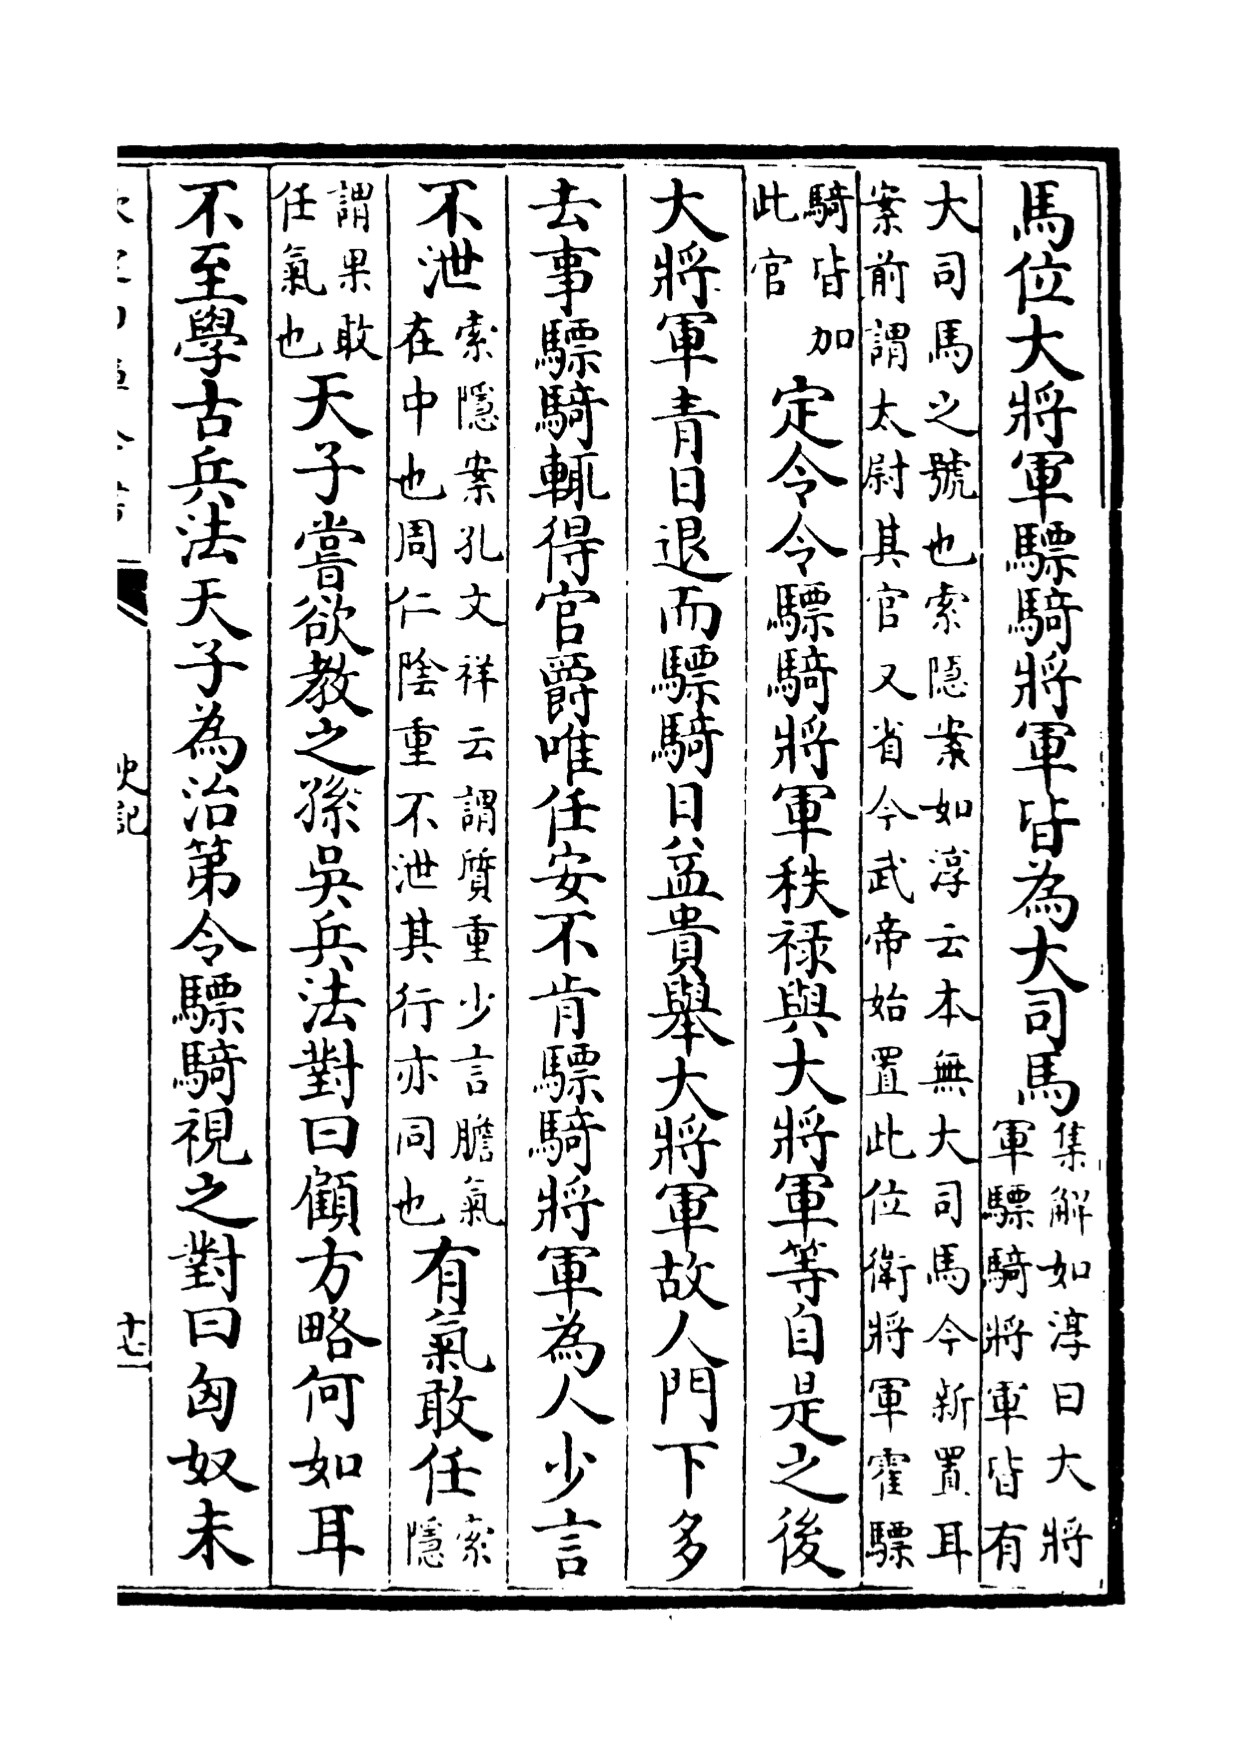 馬位大將軍驃騎將軍皆為大司馬
集解如淳曰大將
軍驃騎將軍皆有
大司馬之號也索隱案如淳云本無大司馬今新置耳
案前謂太尉其官又省今武帝始置此位衛將軍霍驃
騎皆加
此官
定令令驃騎將軍秩禄與大將軍等自是之後
大將軍青日退而驃騎日益貴舉大將軍故人門下多
去事驃騎輒得官爵唯任安不肯驃騎將軍為人少言
不泄
索隱案孔文祥云謂質重少言膽氣
在中也周仁陰重不泄其行亦同也
有氣敢任
索
隱
謂果敢
任氣也
天子嘗欲教之孫吳兵法對曰顧方略何如耳
不至學古兵法天子為治第令驃騎視之對曰匈奴未
史記
十七